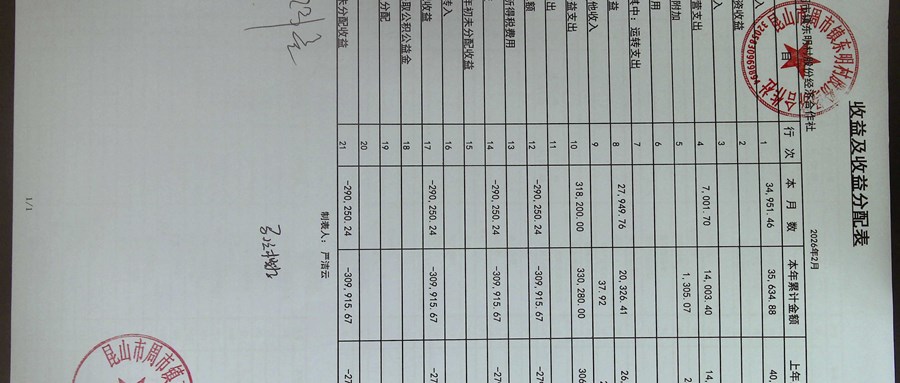 收益及收益分配表
2026年2月
镇东明村股份经济合作社
目 行次 本月数 本年累计金额 上年
入 1 34,951.46 35,634.88 40,
资收益 2
入 3
营支出 4 7,001.70 14,003.40 14,
附加 5 1,305.07 2
用 6
其中：运转支出 7
益 8 27,949.76 20,326.41 26,
他收入 9 37.92
益支出 10 318,200.00 330,280.00 306
出 11
额 12 -290,250.24 -309,915.67 -27
所得税费用 13
14 -290,250.24 -309,915.67 -27
年初未分配收益 15
转入 16
收益 17 -290,250.24 -309,915.67 -27
取公积公益金 18
分配 19
20
未分配收益 21 -290,250.24 -309,915.67 -27
制表人：严洁云
1/1
昆山市周市镇东明村
合作社
昆山市周市镇